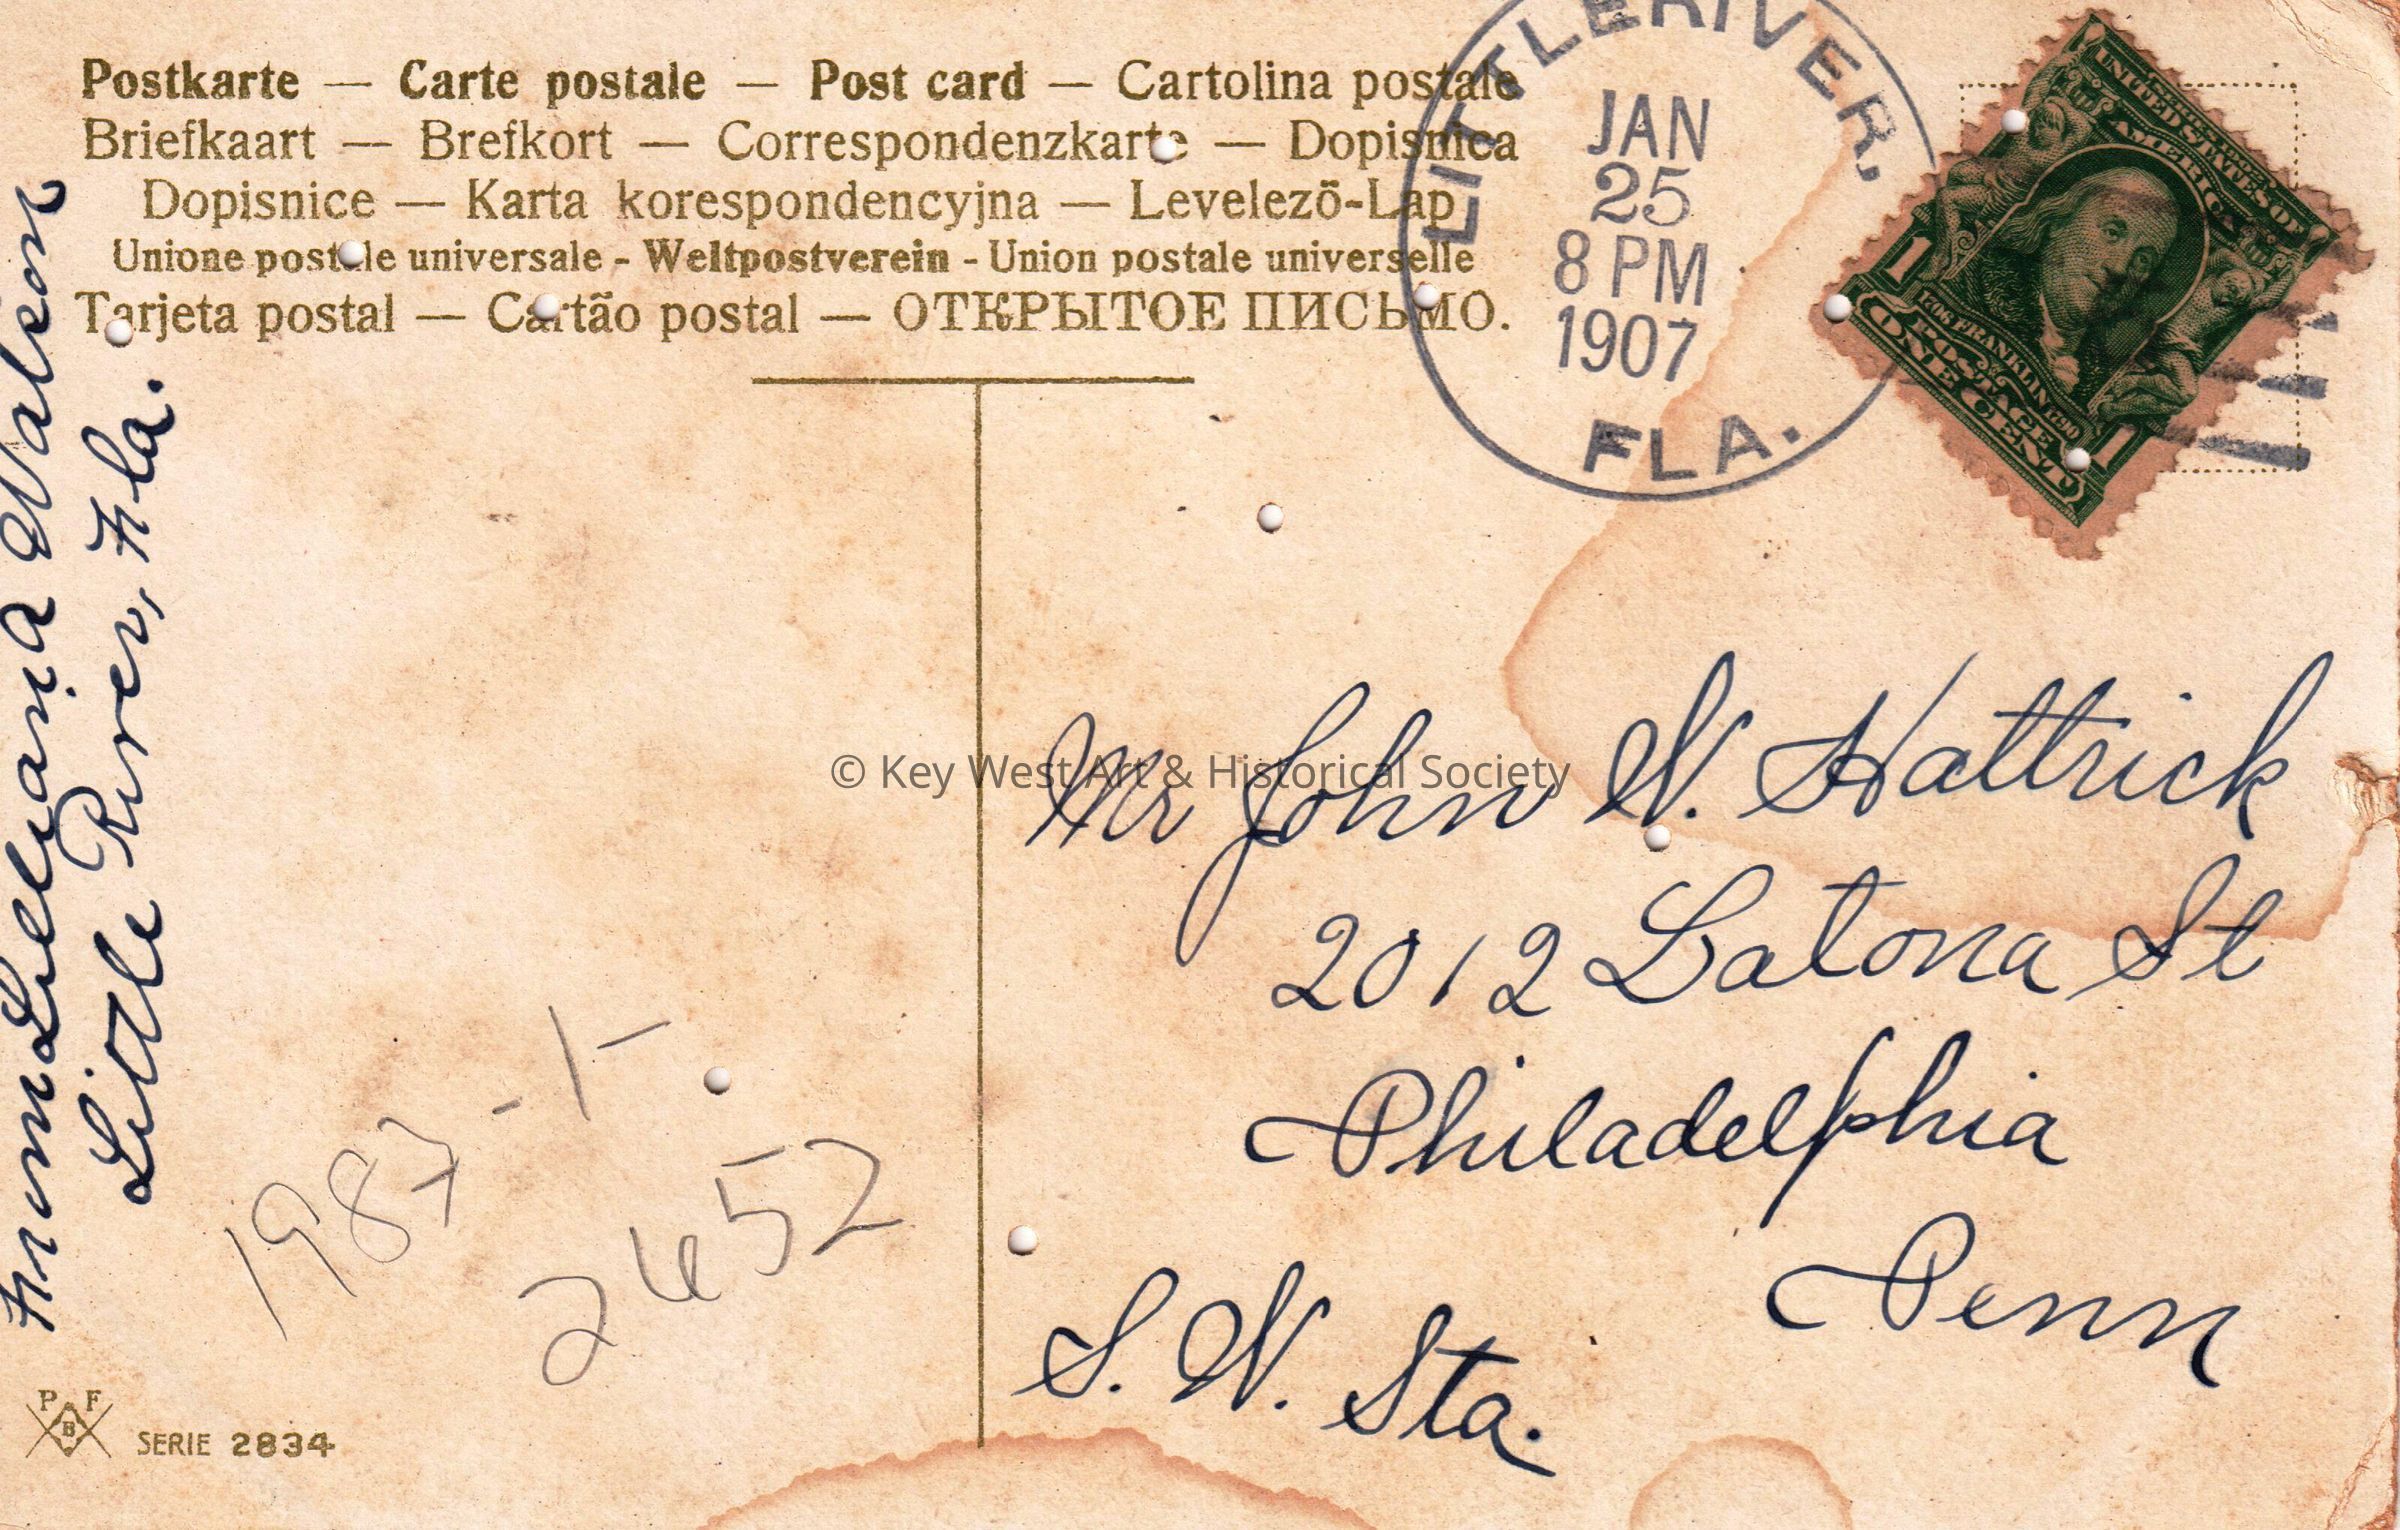 Postkarte — Carte postale — Post card — Cartolina postale
Briefkaart — Brefkort — Correspondenzkarte — Dopisnica
Dopisnice — Karta korespondencyjna — Levelező-Lap
Unione postale universale - Weltpostverein - Union postale universelle
Tarjeta postal — Cartão postal — ОТКРЫТОЕ ПИСЬМО.
LITTLERIVER,
JAN
25
8 PM
1907
FLA.
UNITED STATES OF
AMERICA
POSTAGE
1 ONE CENT 1
From Lilliana
Little River, Fla.
© Key West Art & Historical Society
Mr John W. Hattrick
2012 Latona St
Philadelphia
Penn
S. W. Sta.
1987-1-
2452
P F
B
SERIE 2834